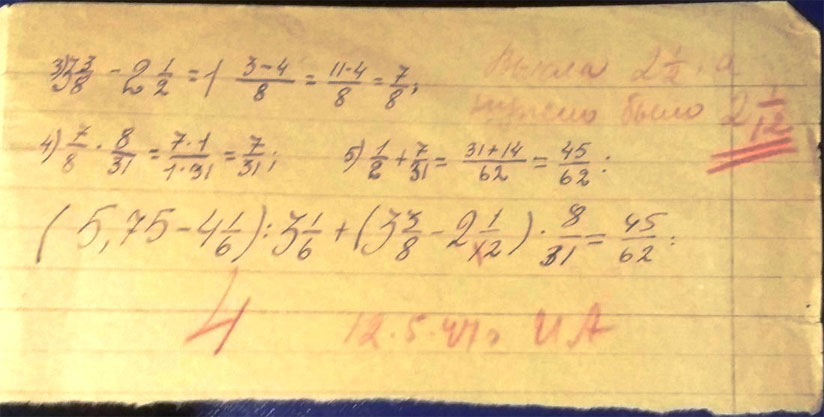 3) 3 3/8 - 2 1/2 = 1 (3-4)/8 = (11-4)/8 = 7/8;
2 1/2, а
нужно было 2 1/12
4) 7/8 · 8/31 = (7·1)/(1·31) = 7/31; 5) 1/2 + 7/31 = (31+14)/62 = 45/62.
(5,75 - 4 1/6) : 3 1/6 + (3 3/8 - 2 1/12) · 8/31 = 45/62.
4 12·5·41г ИА